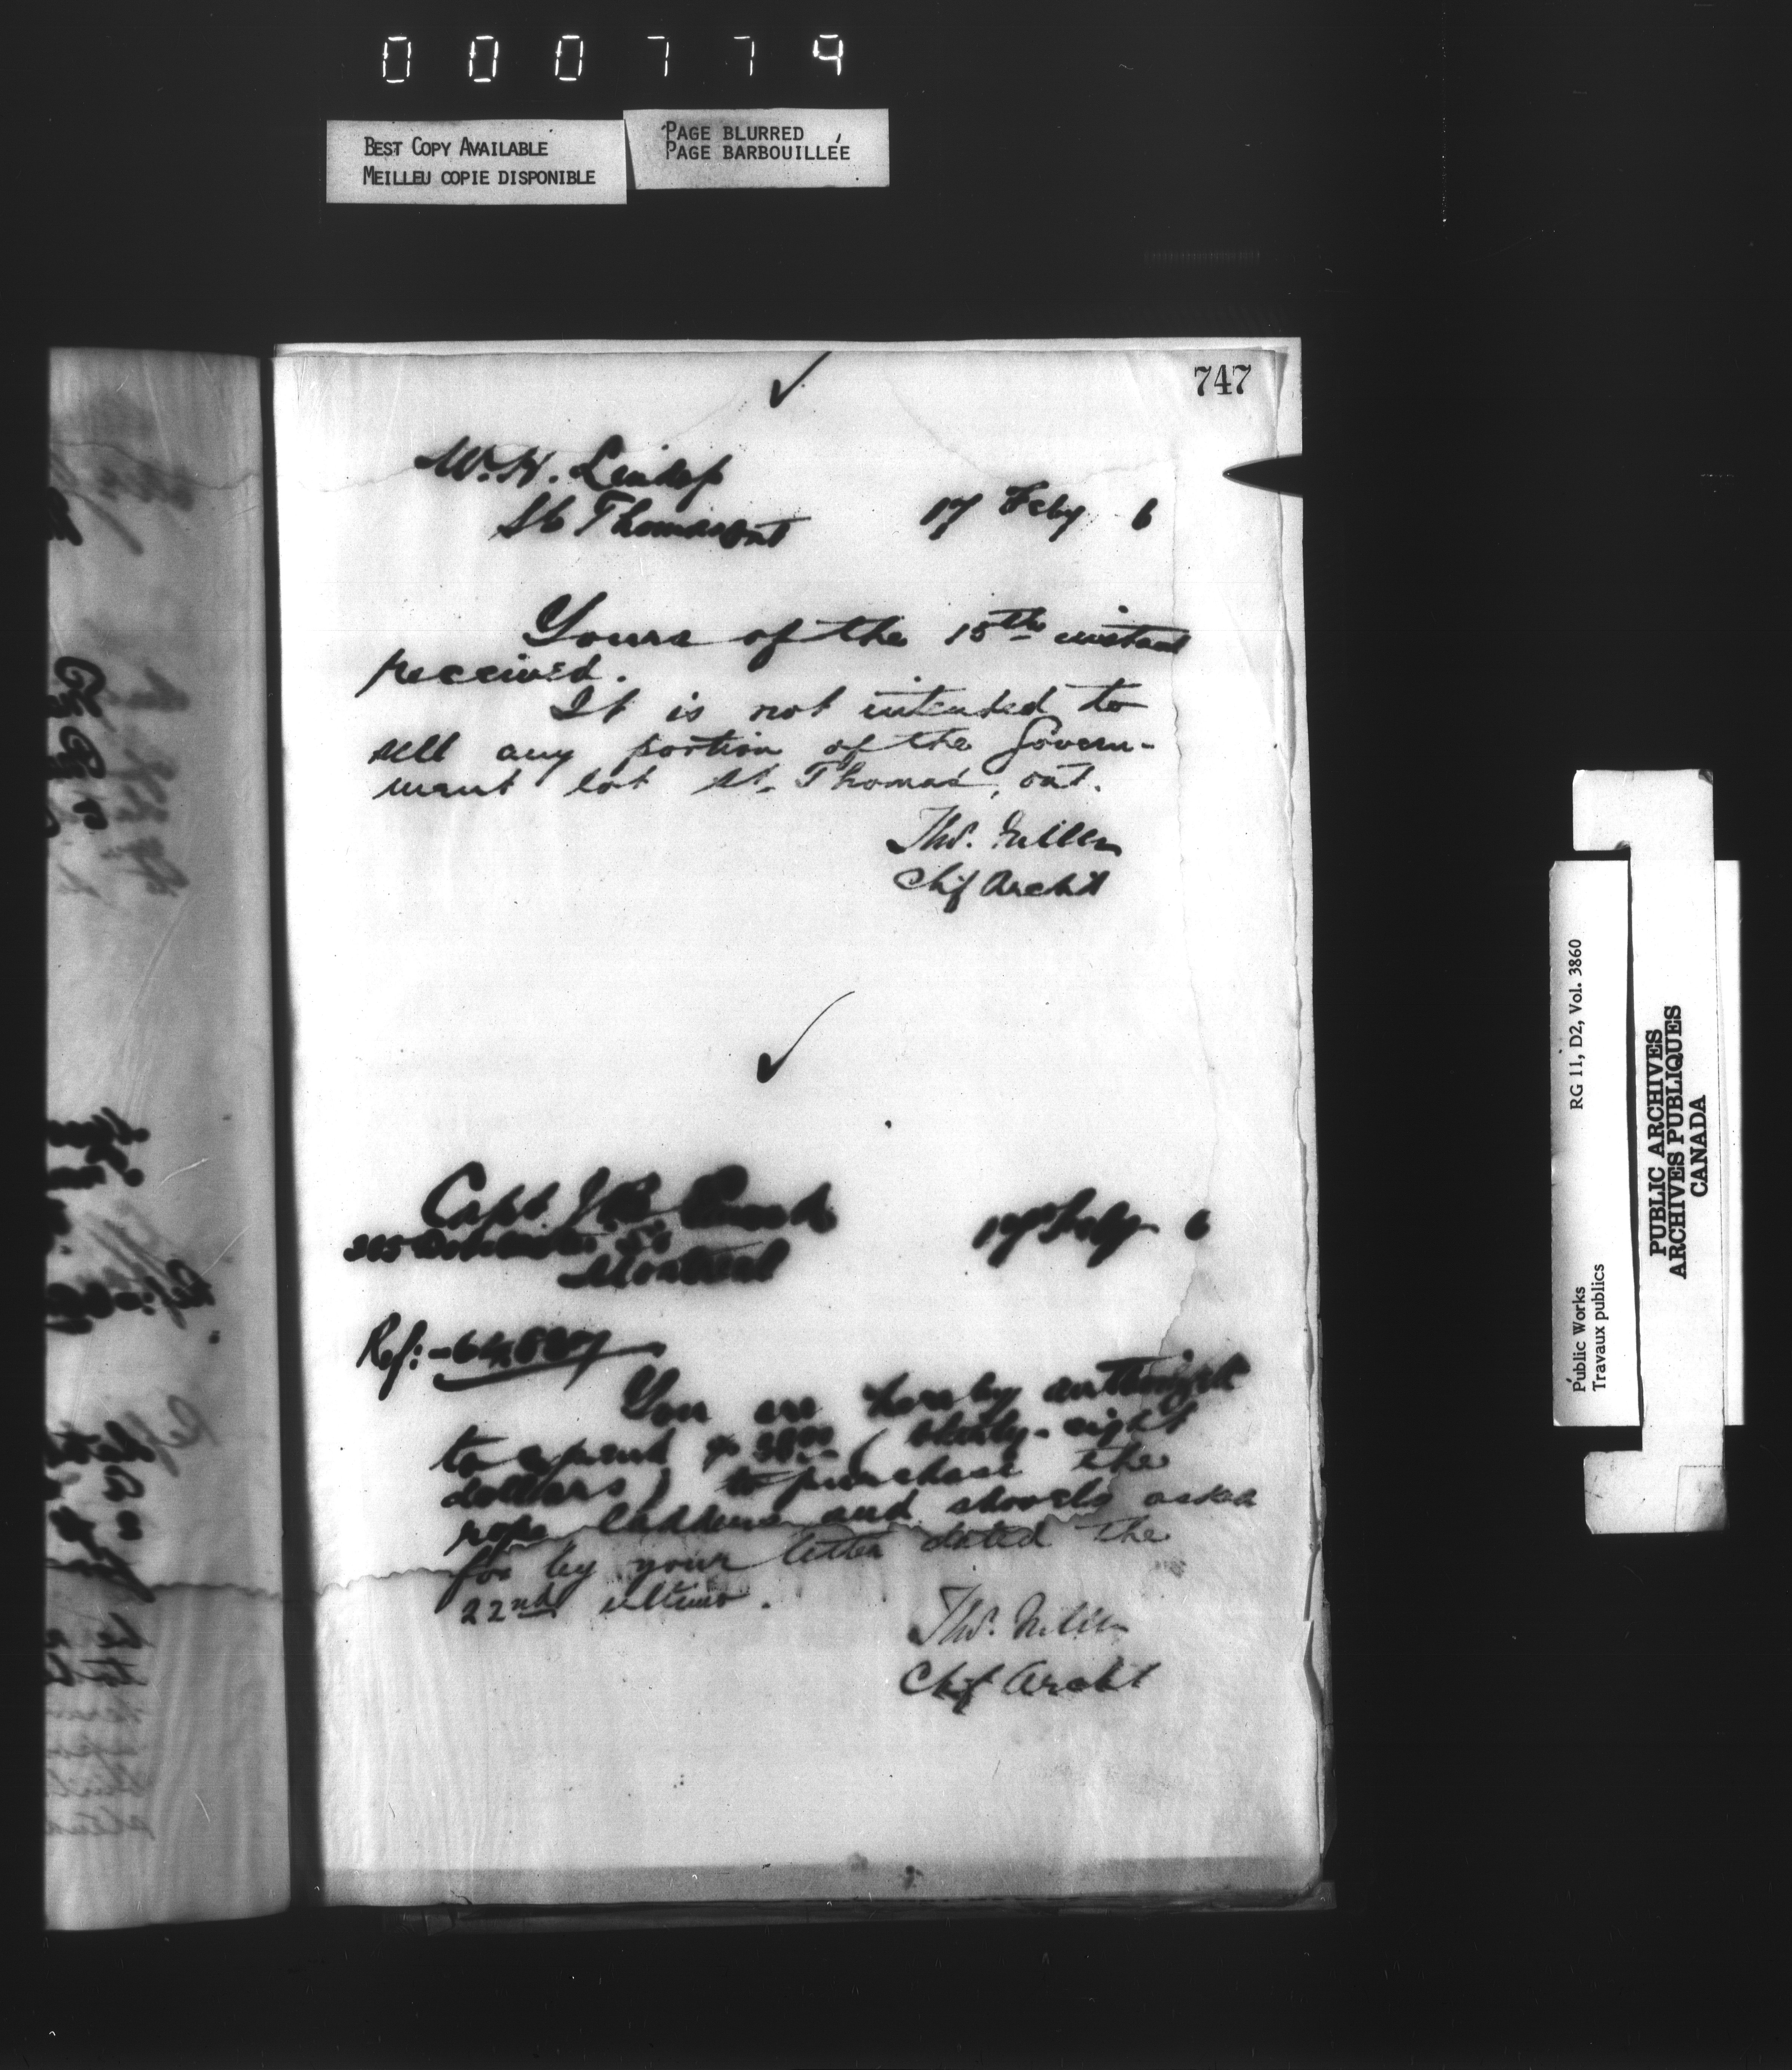 000779
BEST COPY AVAILABLE
MEILLEU COPIE DISPONIBLE
PAGE BLURRED
PAGE BARBOUILLÉE
747
W. H.
St Thomas Ont
17 Feby 6
Yours of the 15th instant
received.
It is not intended to
sell any portion of the Govern-
ment lot St. Thomas, Ont.
Thos.
Chf Archt
Capt J B
Montreal
17 Feby 6
Ref:-
You are hereby authorized
to expend $ 38.00 (thirty-eight
dollars) to purchase the
rope ladders and shovels asked
for by your letter dated the
22nd ultimo.
Thos.
Chf Archt
Public Works RG 11, D2, Vol. 3860
Travaux publics
PUBLIC ARCHIVES
ARCHIVES PUBLIQUES
CANADA